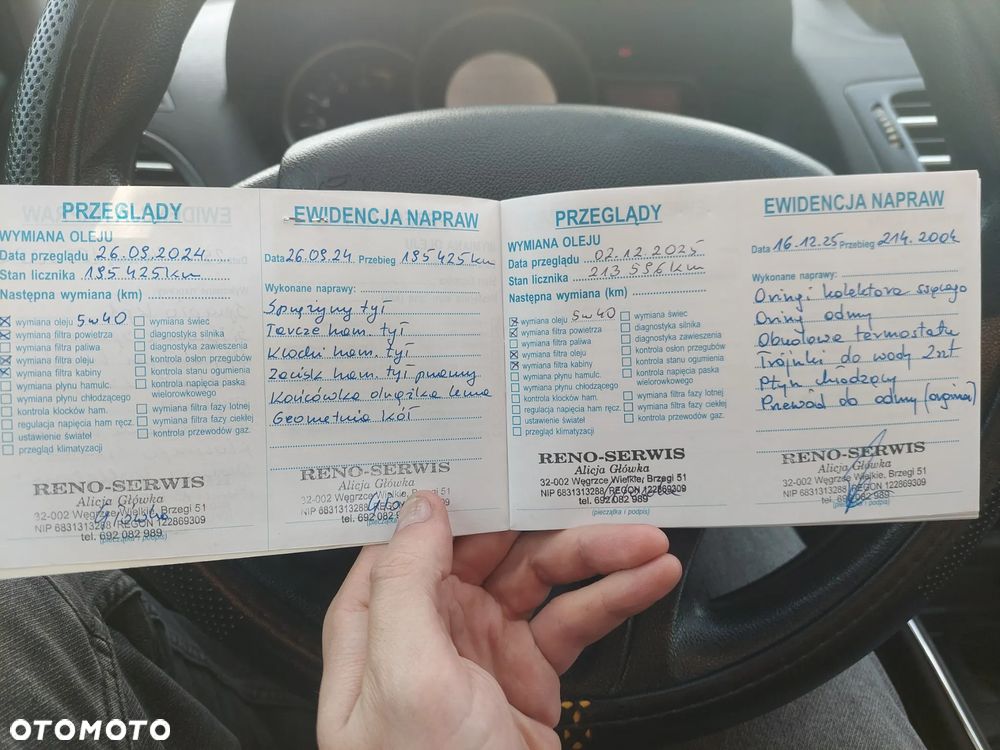 PRZEGLĄDY
WYMIANA OLEJU
Data przeglądu 26.09.2024
Stan licznika 195 425 km
Następna wymiana (km)
wymiana oleju 5w40
wymiana filtra powietrza
wymiana filtra paliwa
wymiana filtra oleju
wymiana filtra kabiny
wymiana płynu hamulc.
wymiana płynu chłodzącego
kontrola klocków ham.
regulacja napięcia ham ręcz.
ustawienie świateł
przegląd klimatyzacji
wymiana świec
diagnostyka silnika
diagnostyka zawieszenia
kontrola osłon przegubów
kontrola stanu ogumienia
kontrola napięcia paska
wielorowkowego
wymiana filtra fazy lotnej
wymiana filtra fazy ciekłej
kontrola przewodów gaz.
RENO-SERWIS
Alicja Główka
32-002 Węgrzce Wielkie, Brzegi 51
NIP 6831313288 REGON 122869309
tel. 692 082 989
(pieczątka i podpis)
EWIDENCJA NAPRAW
Data 26.09.24. Przebieg 195 425 km
Wykonane naprawy:
Sprężyny tył
Tarcze ham. tył
Klocki ham. tył
Zacisk ham. tył prawy
Końcówka drążka lewa
Geometria kół
RENO-SERWIS
Alicja Główka
32-002 Węgrzce Wielkie, Brzegi 51
NIP 6831313288 REGON 122869309
tel. 692 082 989
PRZEGLĄDY
WYMIANA OLEJU
Data przeglądu 02.12.2025
Stan licznika 213 596 km
Następna wymiana (km)
wymiana oleju 5w40
wymiana filtra powietrza
wymiana filtra paliwa
wymiana filtra oleju
wymiana filtra kabiny
wymiana płynu hamulc.
wymiana płynu chłodzącego
kontrola klocków ham.
regulacja napięcia ham. ręcz.
ustawienie świateł
przegląd klimatyzacji
wymiana świec
diagnostyka silnika
diagnostyka zawieszenia
kontrola osłon przegubów
kontrola stanu ogumienia
kontrola napięcia paska
wielorowkowego
wymiana filtra fazy lotnej
wymiana filtra fazy ciekłej
kontrola przewodów gaz.
RENO-SERWIS
Alicja Główka
32-002 Węgrzce Wielkie, Brzegi 51
NIP 6831313288 REGON 122869309
tel. 692 082 989
(pieczątka i podpis)
EWIDENCJA NAPRAW
Data 16.12.25 Przebieg 214.200
Wykonane naprawy:
Oringi kolektora ssącego
Oring odmy
Obudowa termostatu
Trójniki do wody 2szt
Płyn chłodzący
Przewód do odmy
RENO-SERWIS
Alicja Główka
32-002 Węgrzce Wielkie, Brzegi 51
NIP 6831313288 REGON 122869309
tel. 692 082 989
(pieczątka i podpis)
OTOMOTO